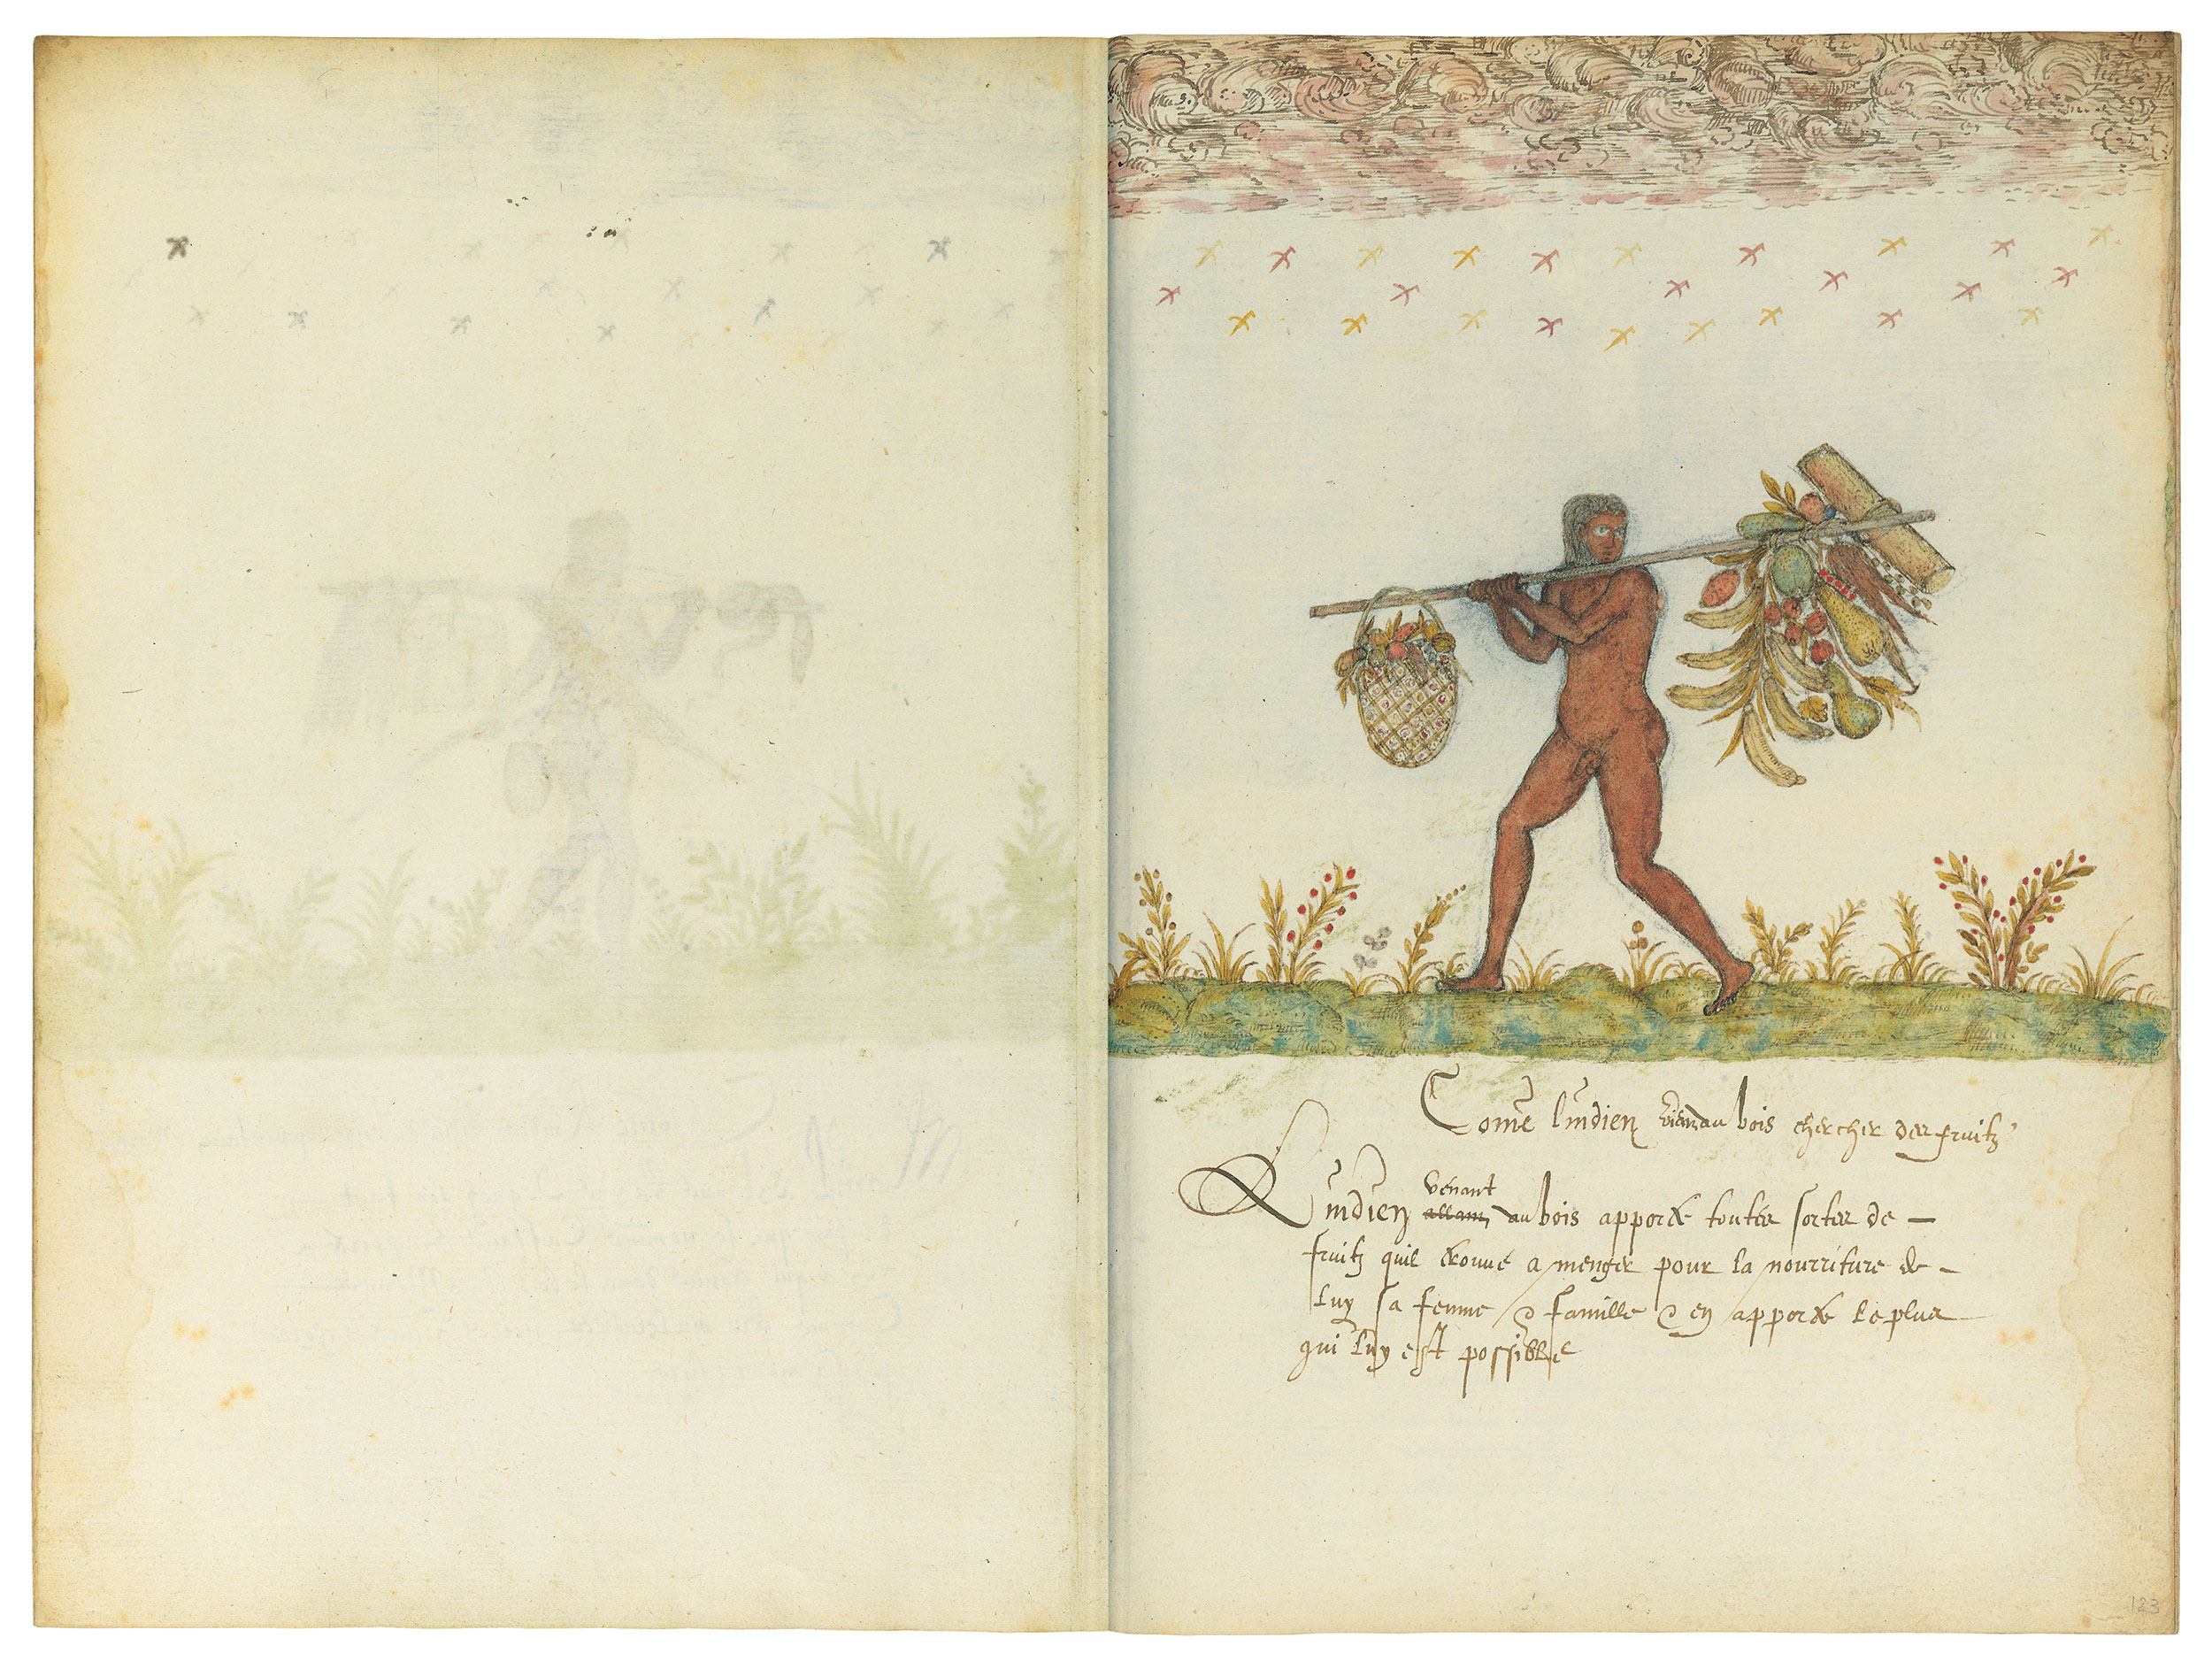 Come̅ l'Indien vient au bois chercher des fruitz
L'indien venant allant au bois apporte toutes sortes de –
fruitz quil trouve a menger pour la nourriture de –
luy sa femme & famille & en apporte le plus
qui luy est possible
123